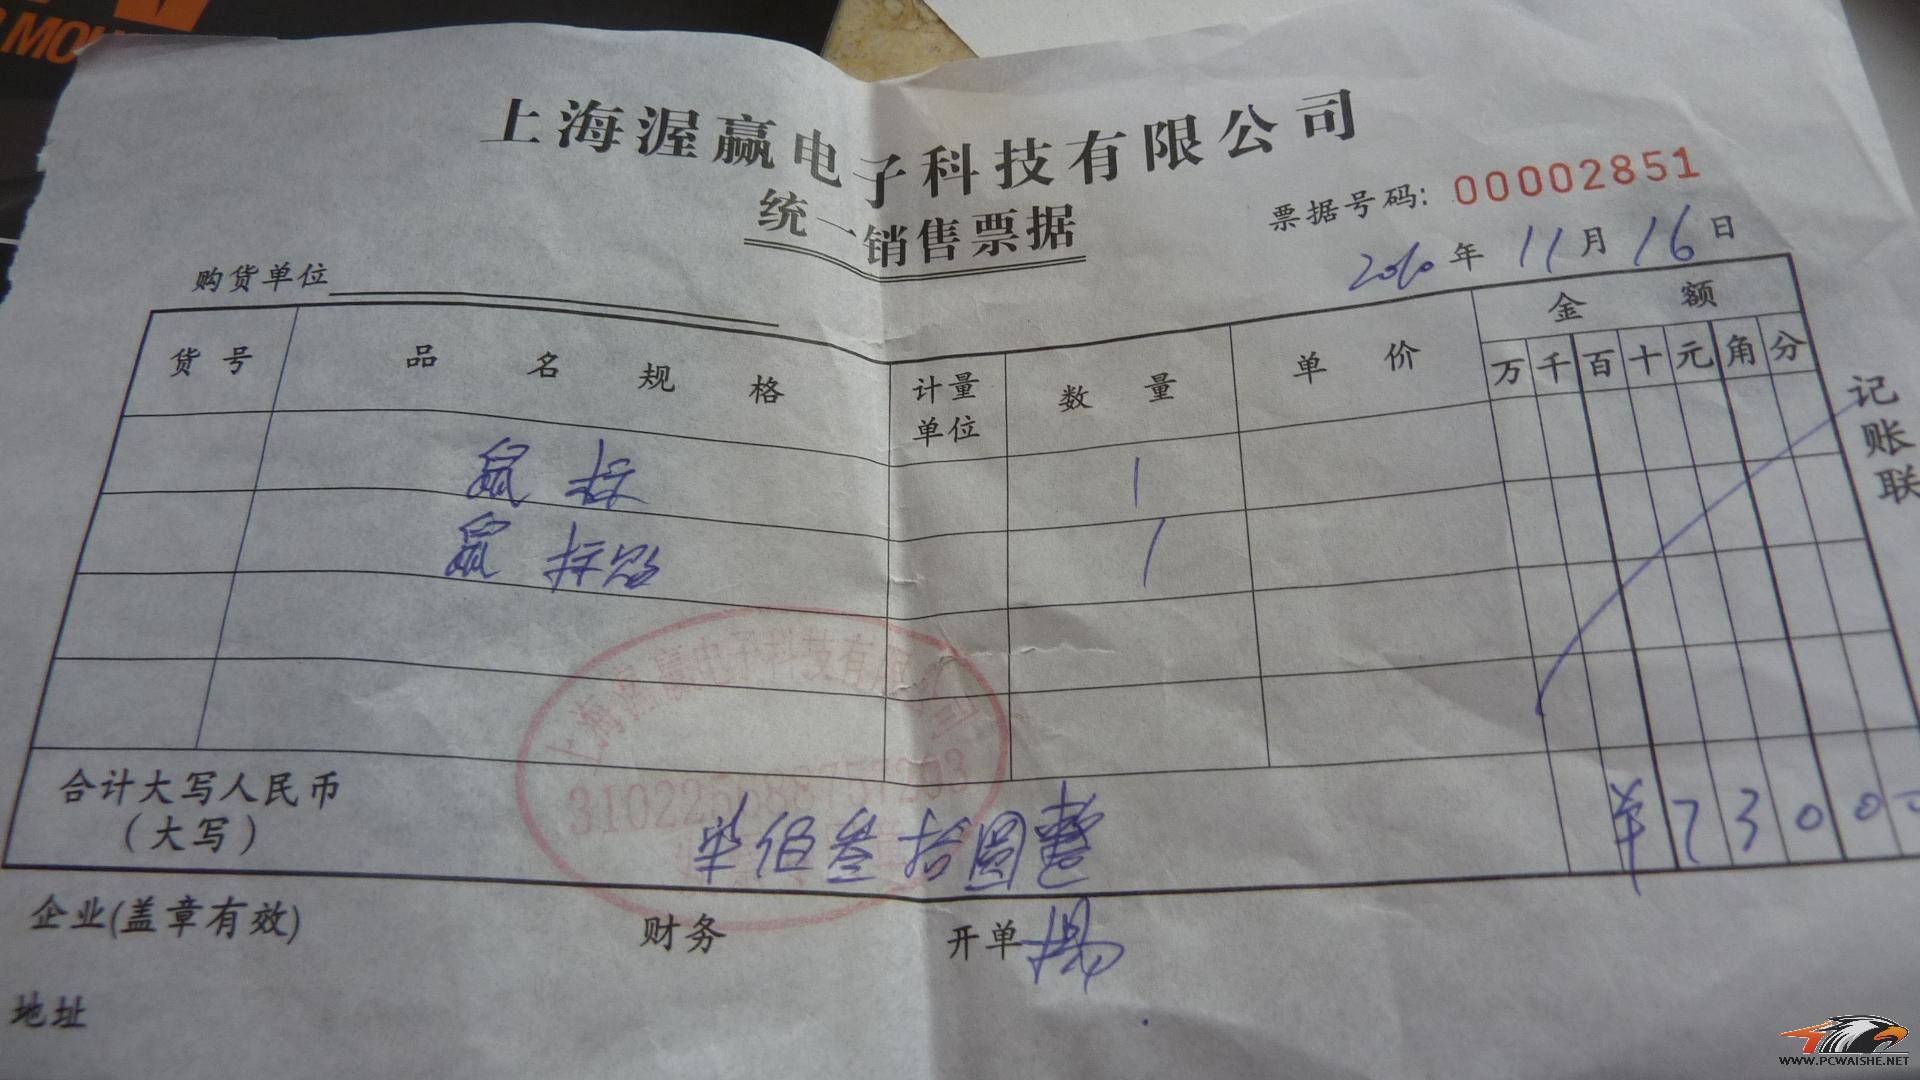 MOU
上海渥赢电子科技有限公司
统一销售票据
票据号码: 00002851
2010年 11月 16日
购货单位
货号 品名规格 计量单位 数量 单价 金额
万 千 百 十 元 角 分
鼠标 1
鼠标垫 1
记账联
上海渥赢电子科技有限公司
合计大写人民币
(大写)
柒佰叁拾圆整 ¥73000
企业(盖章有效) 财务 开单 杨
地址
WWW.PCWAISHE.NET